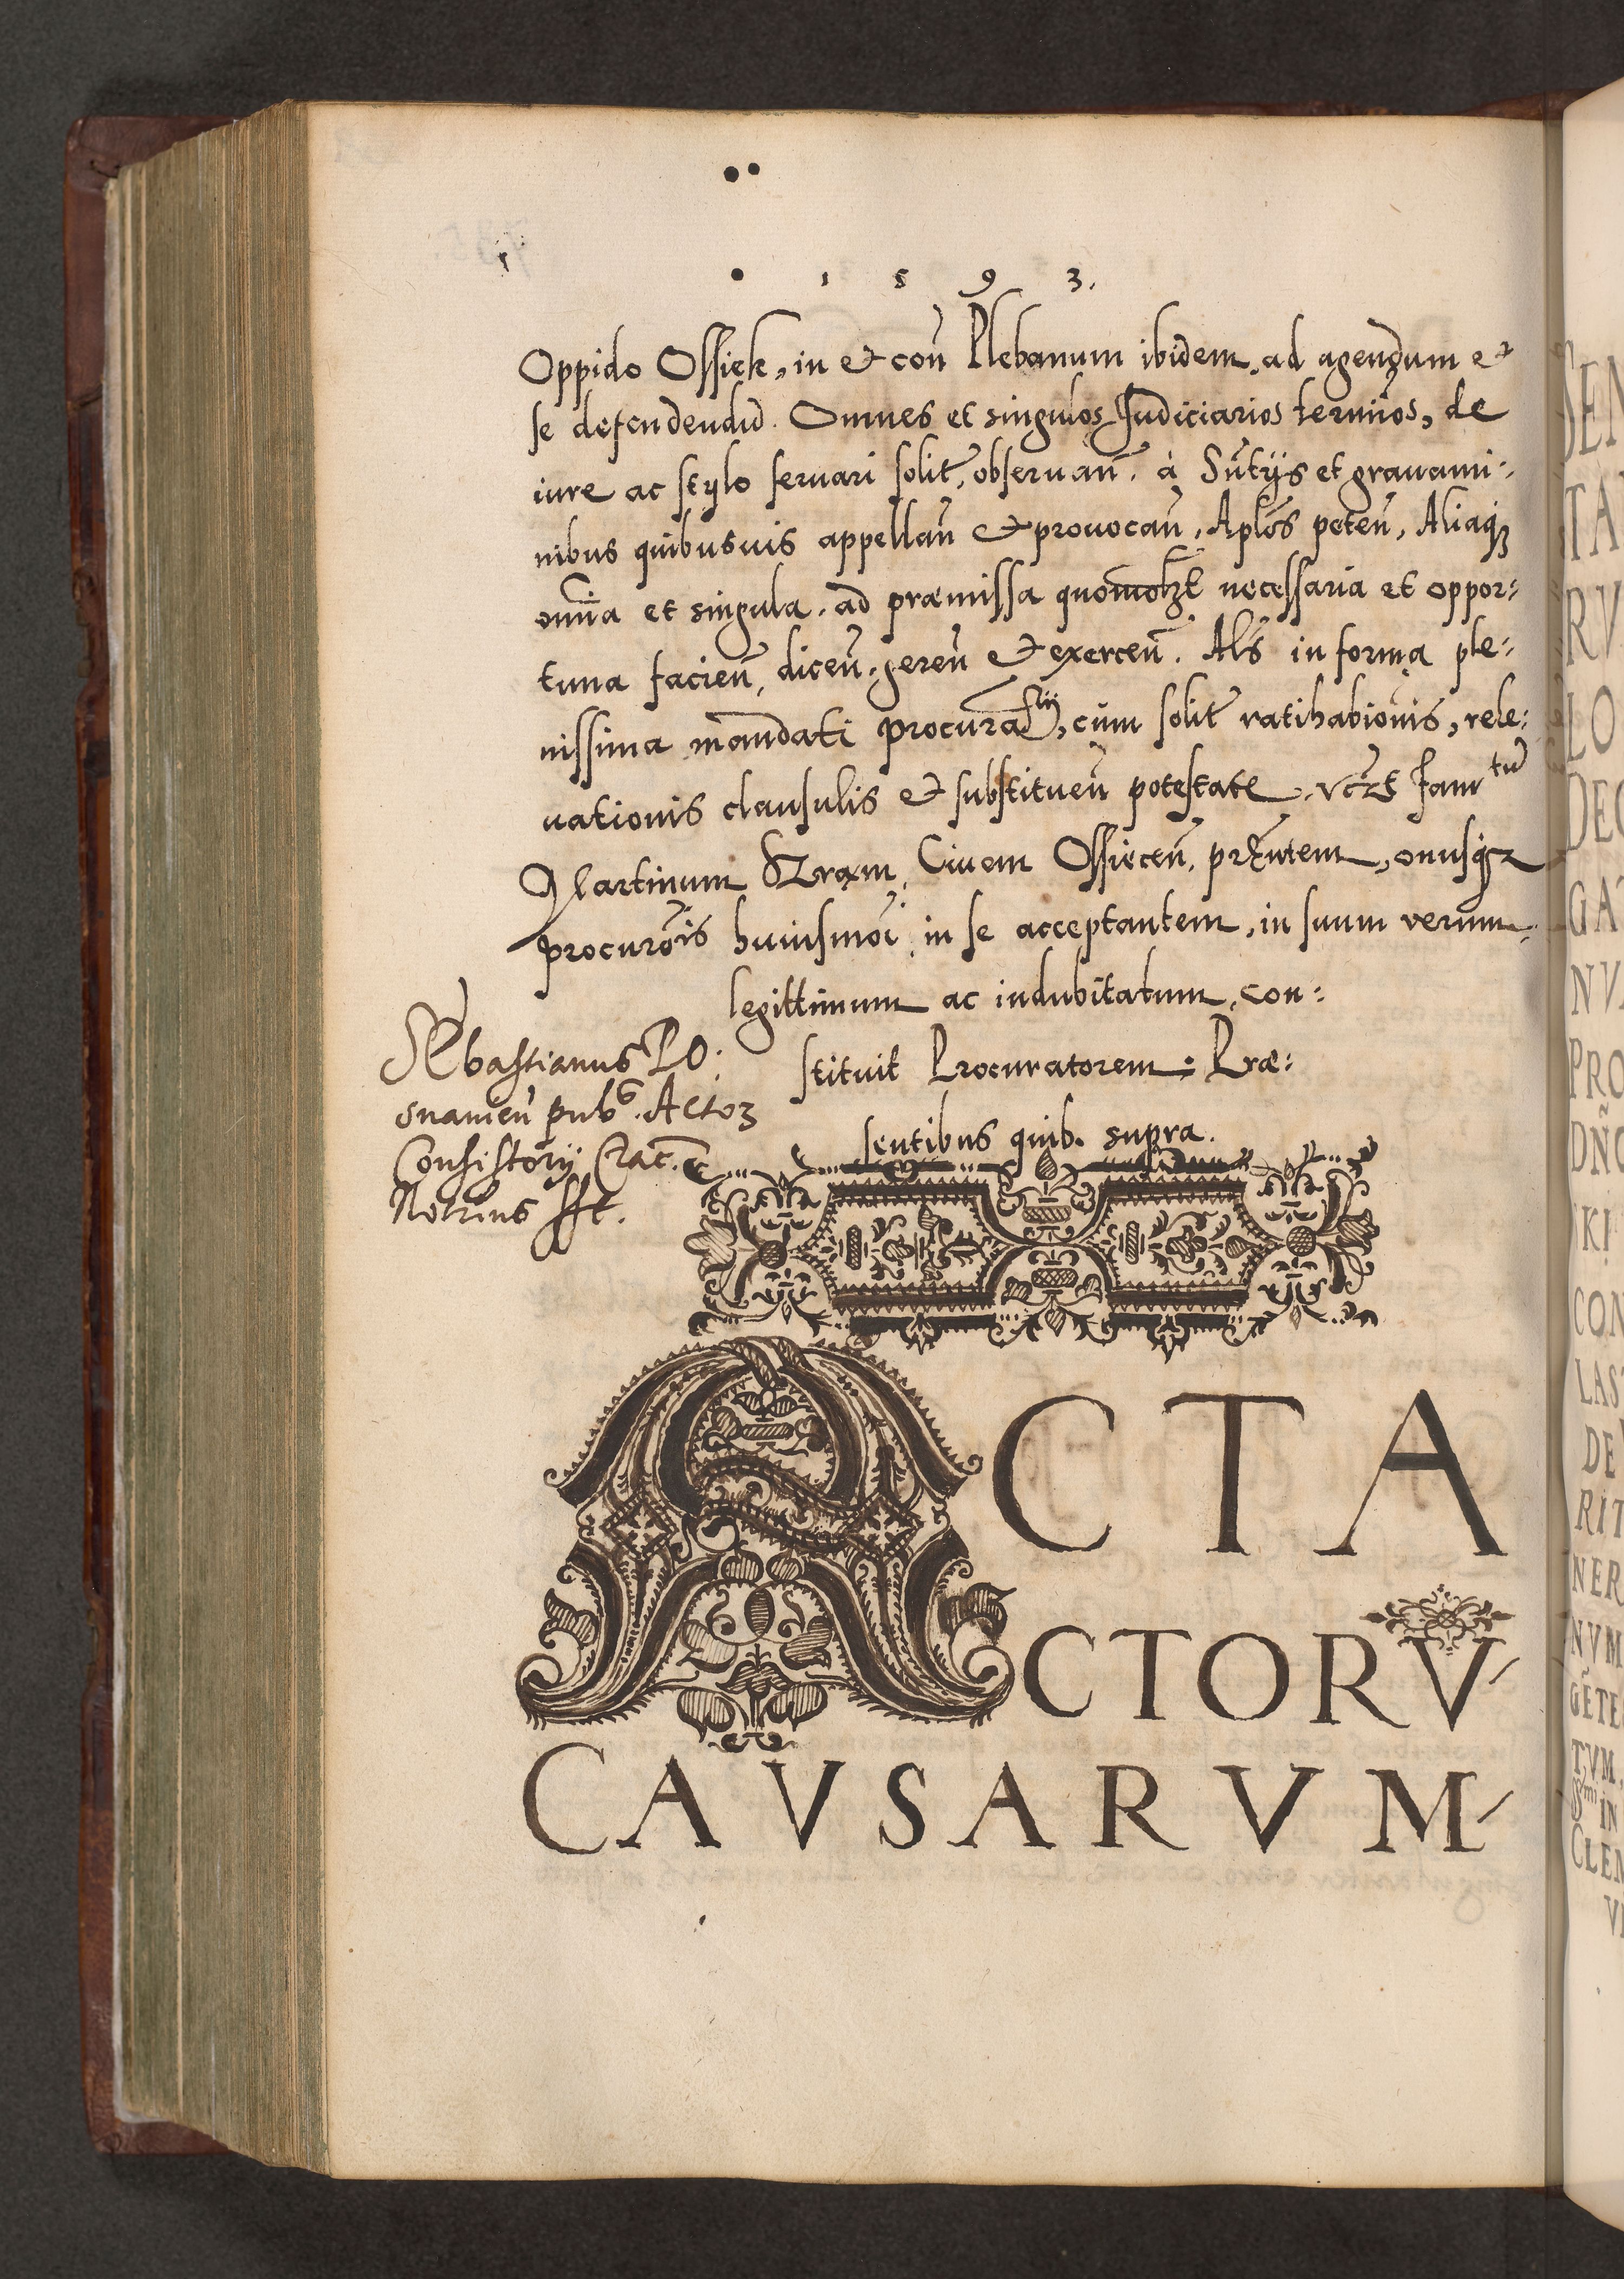 1 5 9 3.
Oppido Ossiek, in et con̄ Plebanum ibidem, ad agendum et
se defendendū. Omnes et singulos Judiciarios termīos, de
iure ac stylo seruari solit, obseruan̄. à Sn̄tijs et grauami:
nibus quibusuis appellan̄ et prouocan̄, Aplōs peten̄, Aliaqꝫ
omn̄ia et singula, ad præmissa quomolꝫt necessaria et oppor:
tuna facien̄, dicen̄, geren̄ et exercen̄. Als̄ in forma ple:
nissima mandati procura^rij, cùm solit ratihabiōnis, rele:
uationis clausulis et substituen̄ potestate, vcꝫt Fam^tū
Martinum Ciuem Ossiecen̄, prn̄tem, onusqꝫ
procurōis huiusmōi in se acceptantem, in suum verum
legittimum ac indubitatum, con:
stituit Procuratorem: Præ:
sentibus quib. supra.
Sebastianus Po:
snanien̄ pub^s. Actoꝝ
Consistorij Crac.
Notrius sst.
ACTA
ACTORV
CAVSARVM
SEN
TA
RV
LO
DEC
GA
NV
PRO
DÑO
KI
CON
LAS
DE
RIT
NER
NVM
GẼTE
TVM,
S^mi IN
CLEM
VI